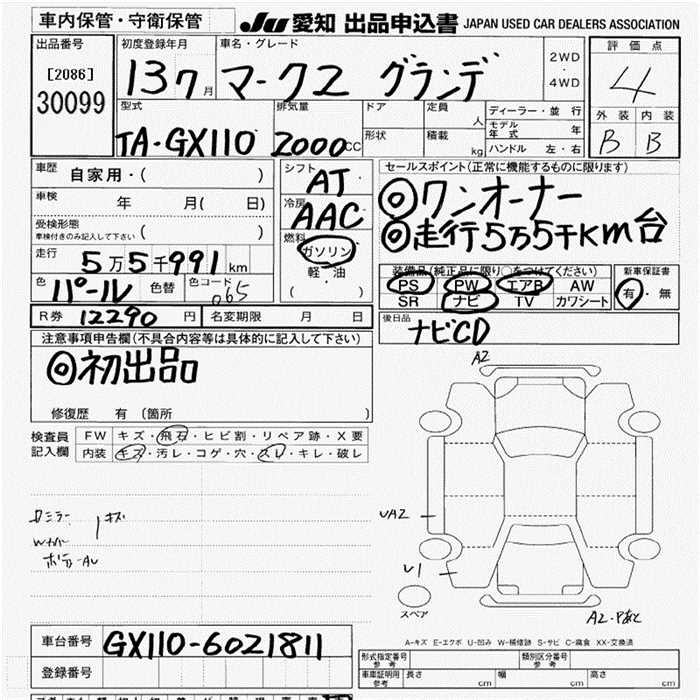 車内保管・守衛保管 JU 愛知 出品申込書 JAPAN USED CAR DEALERS ASSOCIATION
出品番号
[2086]
30099
初度登録年月
13 7 月
車名・グレード
マークⅡ グランデ
2WD
・
4WD
評価点
4
外装 内装
B B
型式
TA-GX110
排気量
2000 CC
ドア
形状
定員
人
積載
kg
ディーラー・並行
モデル年式 年
ハンドル 左・右
車歴
自家用・( )
車検
年 月( 日)
受検形態
車検付きのみ記入して下さい ( )
走行
5万5千991 km
色
パール
色替
色コード
065
シフト
AT
冷房
AAC
燃料
ガソリン
軽・油
( )
セールスポイント(正常に機能するものに限ります)
◎ワンオーナー
◎走行5万5千km台
装備品(純正品に限り○をつけてください)
PS PW エアB AW
SR ナビ TV カワシート
新車保証書
有・無
R券 12290 円 名変期限 月 日
後日品
ナビCD
注意事項申告欄(不具合内容等は具体的に記入して下さい)
◎初出品
修復歴 有 (箇所 )
検査員
記入欄
FW キズ・飛石・ヒビ割・リペア跡・X要
内装 キズ・汚レ・コゲ・穴・スレ・キレ・破レ
A2
UA2
U1
スペア
A2・Pあと
ミラー キズ
A-キズ E-エクボ U-凹み W-補修跡 S-サビ C-腐食 XX-交換済
車台番号 GX110-6021811
登録番号
形式指定番号
参考
類別区分番号
参考
車庫証明用
参考
長さ cm 幅 cm 高さ cm